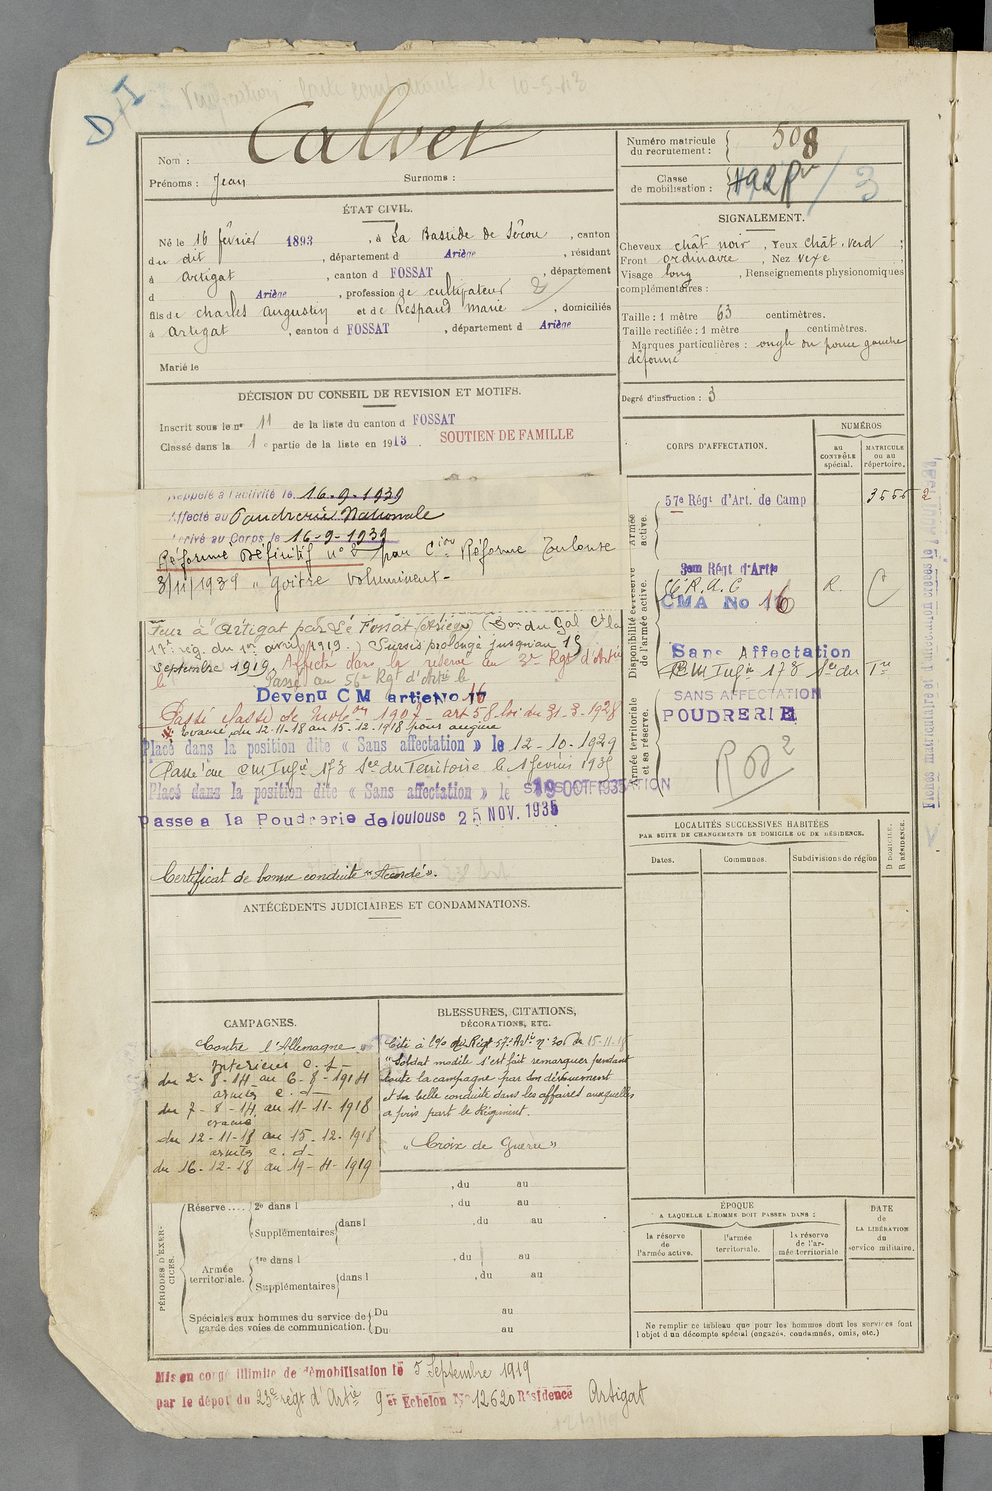 D I
Vérification carte combattant le 10-5-
Calvet
Nom :
Prénoms : Jean Surnoms :
Numéro matricule du recrutement : 508
Classe de mobilisation : 3
ÉTAT CIVIL.
Né le 16 février 1893, à La Bastide de Sérou, canton
du dit, département d Ariège, résidant
à Artigat, canton d FOSSAT, département
d Ariège, profession de cultivateur
fils de Charles Augustin et de Respaud Marie, domiciliés
à Artigat, canton d FOSSAT, département d Ariège
Marié le
SIGNALEMENT.
Cheveux chât noir, Yeux chât. verd ;
Front ordinaire, Nez vexe ;
Visage long, Renseignements physionomiques
complémentaires :
Taille : 1 mètre 63 centimètres.
Taille rectifiée : 1 mètre centimètres.
Marques particulières : ongle du pouce gauche
déformé
Degré d'instruction : 3
DÉCISION DU CONSEIL DE REVISION ET MOTIFS.
Inscrit sous le nº 11 de la liste du canton d FOSSAT
Classé dans la 1 e partie de la liste en 1913. SOUTIEN DE FAMILLE
Rappelé à l'activité le 16-9-1939
Affecté au Poudrerie Nationale
Arrivé au Corps le 16-9-1939
Réformé Définitif nº 2 par Cion Réforme Toulouse
3/11/1939 " goitre volumineux -
à Artigat par Le Fossat (Ariège)
17e rég. du 1er avril 1919.) Sursis prolongé jusqu'au 15
Septembre 1919. Affecté dans la réserve au 3e Régt d'Artie
le Passé au 56e Régt d'Artie le
Devenu CM artie No 16
Passé classe de Mobon 1907 - art 58 loi du 31-3-1928
Evacué du 12-11-18 au 15-12-1918 pour angine
Placé dans la position dite « Sans affectation » le 12-10-1929
Passé au CM Infie 173 Sce du Territoire le 1 février 193
Placé dans la position dite « Sans affectation » le 19 OCT 1935
SANS AFFECTATION
Passé à la Poudrerie de Toulouse 25 NOV. 1935
Certificat de bonne conduite "Accordé".
CORPS D'AFFECTATION.
NUMÉROS
AU CONTRÔLE spécial.
MATRICULE OU AU répertoire.
Armée active.
57e Régt d'Art. de Camp 3555 2
Disponibilité et réserve de l'armée active.
3em Régt d'Artie
R.A.C R. C
CMA No 16
Sans Affectation
CM Infie 173 Sce du Tre
Armée territoriale et sa réserve.
SANS AFFECTATION
POUDRERIE
RD 2
LOCALITÉS SUCCESSIVES HABITÉES
PAR SUITE DE CHANGEMENTS DE DOMICILE OU DE RÉSIDENCE.
Dates. Communes. Subdivisions de région D DOMICILE. R RÉSIDENCE.
ANTÉCÉDENTS JUDICIAIRES ET CONDAMNATIONS.
CAMPAGNES.
Contre l'Allemagne "
Intérieur C. S.
du 2-8-14 au 6-8-1914
armées C. d
du 7-8-14 au 11-11-1918
évacué
du 12-11-18 au 15-12-1918
armées C. d
du 16-12-18 au 19-4-1919
BLESSURES, CITATIONS,
DÉCORATIONS, ETC.
Cité à l'o/o du Régt 57e Artie nº 306 du 15-11-18
"Soldat modèle s'est fait remarquer pendant
toute la campagne par son dévouement
et sa belle conduite dans les affaires auxquelles
a pris part le Régiment.
"Croix de Guerre"
, du au
PÉRIODES D'EXERCICES.
Réserve.... 2e dans l , du au
Supplémentaires dans l , du au
Armée territoriale.
1re dans l , du au
Supplémentaires dans l , du au
Spéciales aux hommes du service de garde des voies de communication.
Du au
Du au
ÉPOQUE
A LAQUELLE L'HOMME DOIT PASSER DANS :
la réserve de l'armée active.
l'armée territoriale.
la réserve de l'armée territoriale
DATE de LA LIBÉRATION du service militaire.
Ne remplir ce tableau que pour les hommes dont les services font
l'objet d'un décompte spécial (engagés, condamnés, omis, etc.)
Mis en congé illimité de démobilisation le 5 Septembre 1919
par le dépôt du 23e régt d'Artie 9 er Echelon No 12620 Résidence Artigat